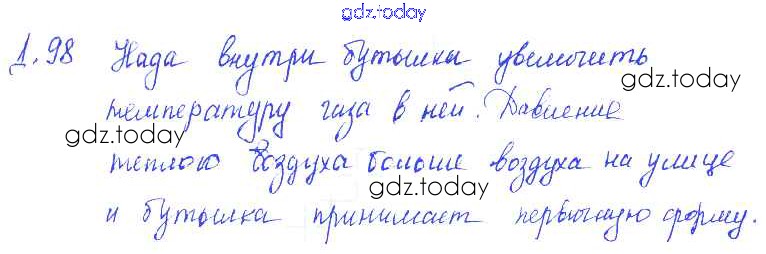 gdz.today
1.98 Нада внутри бутылки увеличить
gdz.today
температуру газа в ней. Давление
gdz.today
теплого воздуха больше воздуха на улице
gdz.today
и бутылка принимает первичную форму.